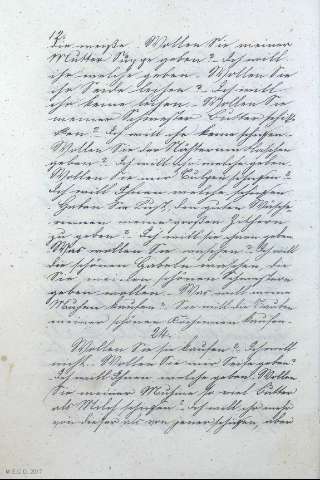 12.
die meiste. Wollen Sie meiner
Mutter Suppe geben? Ich will
ihr welche geben. Wollen Sie
ihr Seide leihen? Ich will
ihr keine leihen. Wollen Sie
meiner Schwester Butter schik-
ken? Ich will ihr keine schicken.
Wollen Sie der Nachbarinn Flaschen
geben? Ich will ihr welche geben.
Wollen Sie mir
Ich will Ihnen welche schicken.
Haben Sie Lust, den guten
meine großen
zu geben? Ich will sie ihnen geben.
Was wollen Sie machen? Ich will
die schönen Gabeln
Sie den schönen Schwestern
geben wollen. Was will meine
kaufen? Sie will die Tauben
meiner schönen kaufen.
24.
Wollen Sie sie kaufen? Ich will
nicht. Wollen Sie mir Seife geben?
Ich will Ihnen welche geben. Wollen
Sie meiner Muhme so viel Butter
als Milch schicken? Ich will ihr mehr
von dieser als von jener schicken, aber
M.E.C.D. 2017